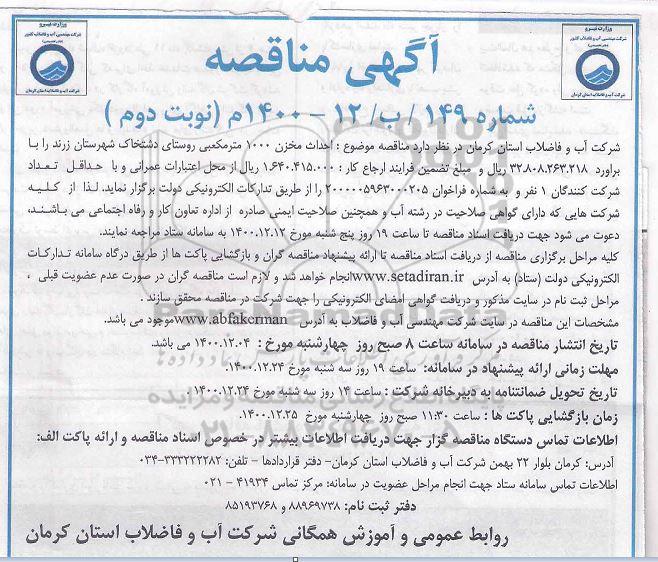 وزارت نیرو
شرکت مهندسی آب و فاضلاب کشور
شرکت آب و فاضلاب استان کرمان
آگهی مناقصه
وزارت نیرو
شرکت مهندسی آب و فاضلاب کشور
شرکت آب و فاضلاب استان کرمان
شماره ۱۴۹ / ب/ ۱۲ – ۱۴۰۰م (نوبت دوم )
شرکت آب و فاضلاب استان کرمان در نظر دارد مناقصه موضوع : احداث مخزن ۱۰۰۰ مترمکعبی روستای دشتخاک شهرستان زرند را با
براورد ۳۲.۸۰۸.۲۶۳.۲۱۸ ریال و مبلغ تضمین فرایند ارجاع کار : ۱.۶۴۰.۴۱۵.۰۰۰ ریال از محل اعتبارات عمرانی و با حداقل تعداد
شرکت کنندگان ۱ نفر و به شماره فراخوان ۲۰۰۰۰۰۵۹۶۳۰۰۰۲۰۵ را از طریق تدارکات الکترونیکی دولت برگزار نماید. لذا از کلیه
شرکت هایی که دارای گواهی صلاحیت در رشته آب و همچنین صلاحیت ایمنی صادره از اداره تعاون کار و رفاه اجتماعی می باشند،
دعوت می شود جهت دریافت اسناد مناقصه تا ساعت ۱۹ روز پنج شنبه مورخ ۱۴۰۰.۱۲.۱۲ به سامانه ستاد مراجعه نمایند.
کلیه مراحل برگزاری مناقصه از دریافت اسناد مناقصه تا ارائه پیشنهاد مناقصه گران و بازگشایی پاکت ها از طریق درگاه سامانه تدارکات
الکترونیکی دولت (ستاد) به آدرس www.setadiran.ir انجام خواهد شد و لازم است مناقصه گران در صورت عدم عضویت قبلی ،
مراحل ثبت نام در سایت مذکور و دریافت گواهی امضای الکترونیکی را جهت شرکت در مناقصه محقق سازند .
مشخصات این مناقصه در سایت شرکت مهندسی آب و فاضلاب به آدرس www.abfakerman موجود می باشد.
تاریخ انتشار مناقصه در سامانه ساعت ۸ صبح روز چهارشنبه مورخ : ۱۴۰۰.۱۲.۰۴ می باشد.
مهلت زمانی ارائه پیشنهاد در سامانه: ساعت ۱۹ روز سه شنبه مورخ ۱۴۰۰.۱۲.۲۴
تاریخ تحویل ضمانتنامه به دبیرخانه شرکت : ساعت ۱۴ روز سه شنبه مورخ ۱۴۰۰.۱۲.۲۴
زمان بازگشایی پاکت ها : ساعت ۱۱:۳۰ صبح روز چهارشنبه مورخ ۱۴۰۰.۱۲.۲۵
اطلاعات تماس دستگاه مناقصه گزار جهت دریافت اطلاعات بیشتر در خصوص اسناد مناقصه و ارائه پاکت الف:
آدرس: کرمان بلوار ۲۲ بهمن شرکت آب و فاضلاب استان کرمان– دفتر قراردادها – تلفن: ۳۳۳۲۲۲۲۸۲–۰۳۴
اطلاعات تماس سامانه ستاد جهت انجام مراحل عضویت در سامانه: مرکز تماس ۴۱۹۳۴ – ۰۲۱
دفتر ثبت نام: ۸۸۹۶۹۷۳۸ و ۸۵۱۹۳۷۶۸
روابط عمومی و آموزش همگانی شرکت آب و فاضلاب استان کرمان